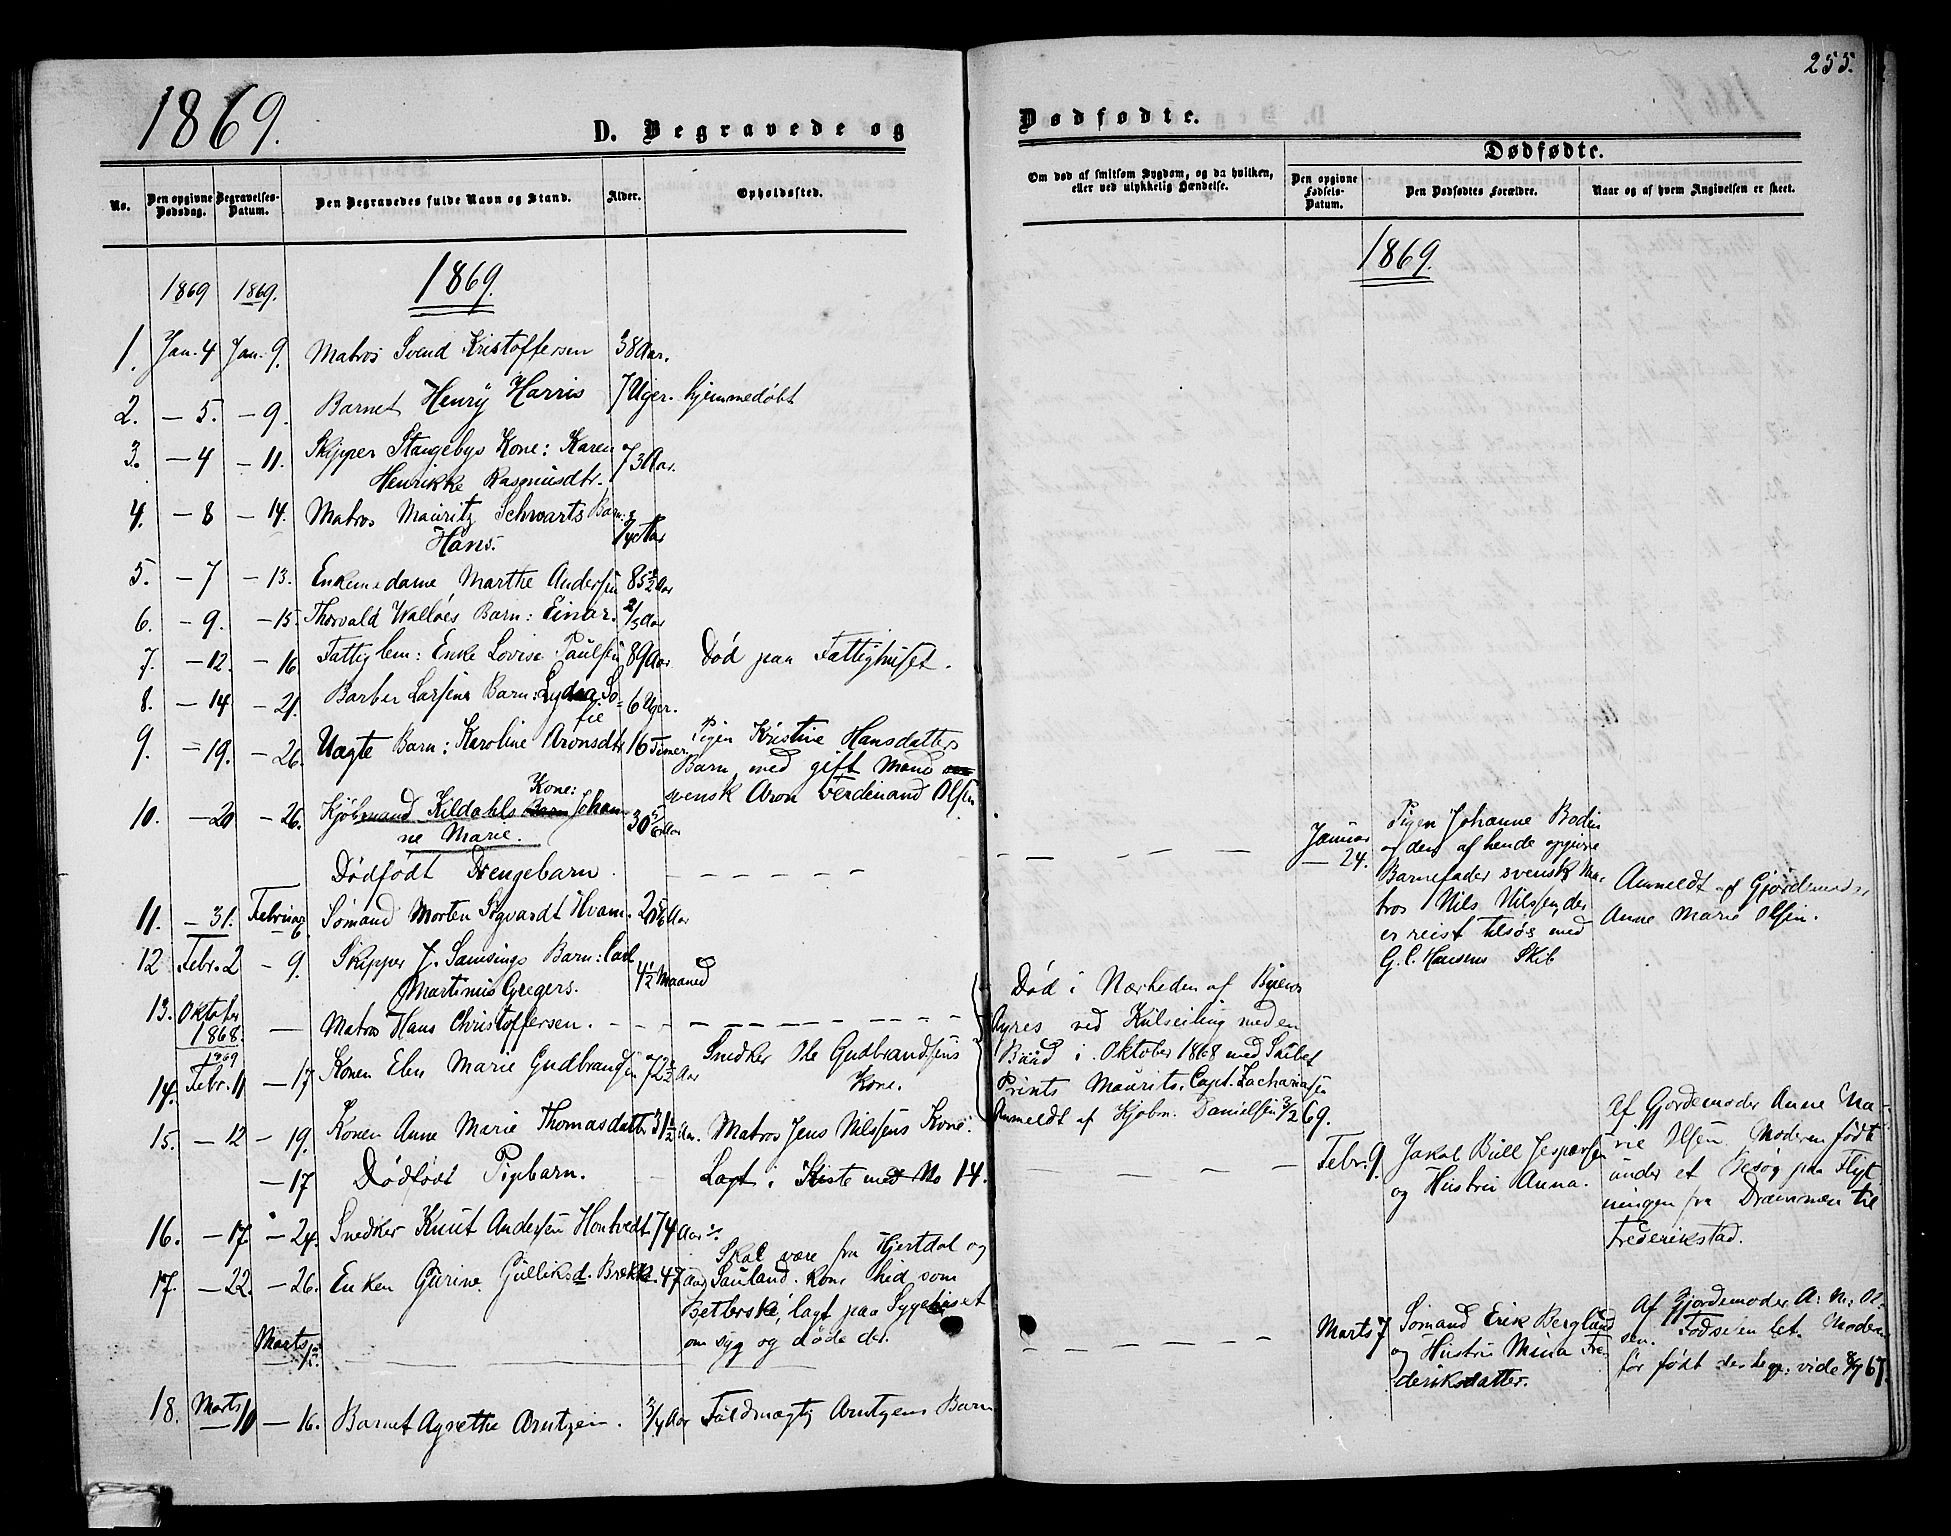 255.
1869.
D. Begravede og
Dødfødte.
No.
Den opgivne Dødsdag.
Begravelses-Datum.
Den Begravedes fulde Navn og Stand.
Alder.
Opholdssted.
Om død af smitsom Sygdom, og da hvilken,
eller ved ulykkelig Hændelse.
Dødfødte.
Den opgivne Fødsels-Datum.
Den Dødfødtes Forældre.
Naar og af hvem Angivelsen er skeet.
1869 1869. 1869.
1869.
1. Jan. 4 Jan. 9. Matros Svend Kristoffersen 38 Aar.
2. — 5. — 9. Barnet Henry Harris 7 Uger. hjemmedøbt
3. — 4 — 11. Skipper Stangebys Kone: Karen 73 Aar.
Henrikke Rasmusdtr.
4. — 8 — 14. Matros Mauritz Schwarts Barn: 3/4 Aar
Hans.
5. — 7 — 13. Enkemadame Marthe Andersen 85 1/2 Aar
6. — 9. — 15. Thorvald Walløes Barn: Einar. 2/3 Aar
7. — 12. — 16. Fattiglem: Enke Lovise Paulsen 89 Aar Død paa Fattighuset.
8. — 14 — 21. Barber Larsens Barn: Lydia So- 6 Uger.
fie
9. — 19. — 26. Uægte Barn: Karoline Aronsdtr 16 Timer. Pigen Kristine Hansdatters
Barn med gift Mand
svensk Aron Ferdinand Olsen
10. — 20 — 26. Kjøbmand Kildahls Barn Kone: Johan- 30 5/6 Aar
ne Marie.
Dødfødt Drengebarn. — — — — —
Januar
— 24.
Pigen Johanne Bodin
og den af hende opgivne
Barnefader svensk Ma-
tros Nils Nilssen, der
er reist tilsøs med
G. C. Hansens Skib
Anmeldt af Gjordemoder
Anne Marie Olsen.
11. — 31. Februar 6. Sømand Morten Sigvardt Hvam. Aar
12 Febr. 2 — 9. Skipper J. Samsings Barn: Carl 4 1/2 Maaned
Martinius Gregers.
13. Oktober 1868. — Matros Hans Christoffersen. — — — — — —
Død i Nærheden af Buenos
Ayres ved Kulseiling med en
Baad i Oktober 1868 med Skibet
Prints Maurits. Capt. Zachariasen
Anmeldt af Kjøbm. Danielsen 3/2 69.
1869
14. Febr. 11 — 17 Konen Elen Marie Gudbrandsen 72 1/2 Aar Snedker Ole Gudbrandsens
Kone.
15. — 12 — 19. Konen Anne Marie Thomasdatter 31 1/2 Aar. Matros Jens Nilssens Kone.
— 17 Dødfødt Pigebarn. — Lagt i Kiste med No 14.
Febr. 9
Jakob Bull Jespersen
og Hustru Anna.
Af Gjordemoder Anne Ma-
rie Olsen. Moderen fødte
under et Besøg paa Flyt-
ningen fra Drammen til
Frederikstad.
16. — 17. — 24. Snedker Knut Andersen Hontvedt 74 Aar
17. — 22. — 26. Enken Gurine Gulliksd. Brekke. 47 Aar
Skal være fra Hjertdal og
Sauland. Kom hid som
Betlerske, lagt paa Sygehuset
om syg og døde der.
Marts
— — — — —
Marts 7
Sømand Erik Berglund
og Hustru Mina Fre-
deriksdatter.
Af Gjordemoder A: M: Ol-
sen. Fødselen let. Moder
før født vide 67.
18. Marts
— 10 — 16. Barnet Agnethe Arntzen. 3/4 Aar Fuldmægtig Arntzens Barn